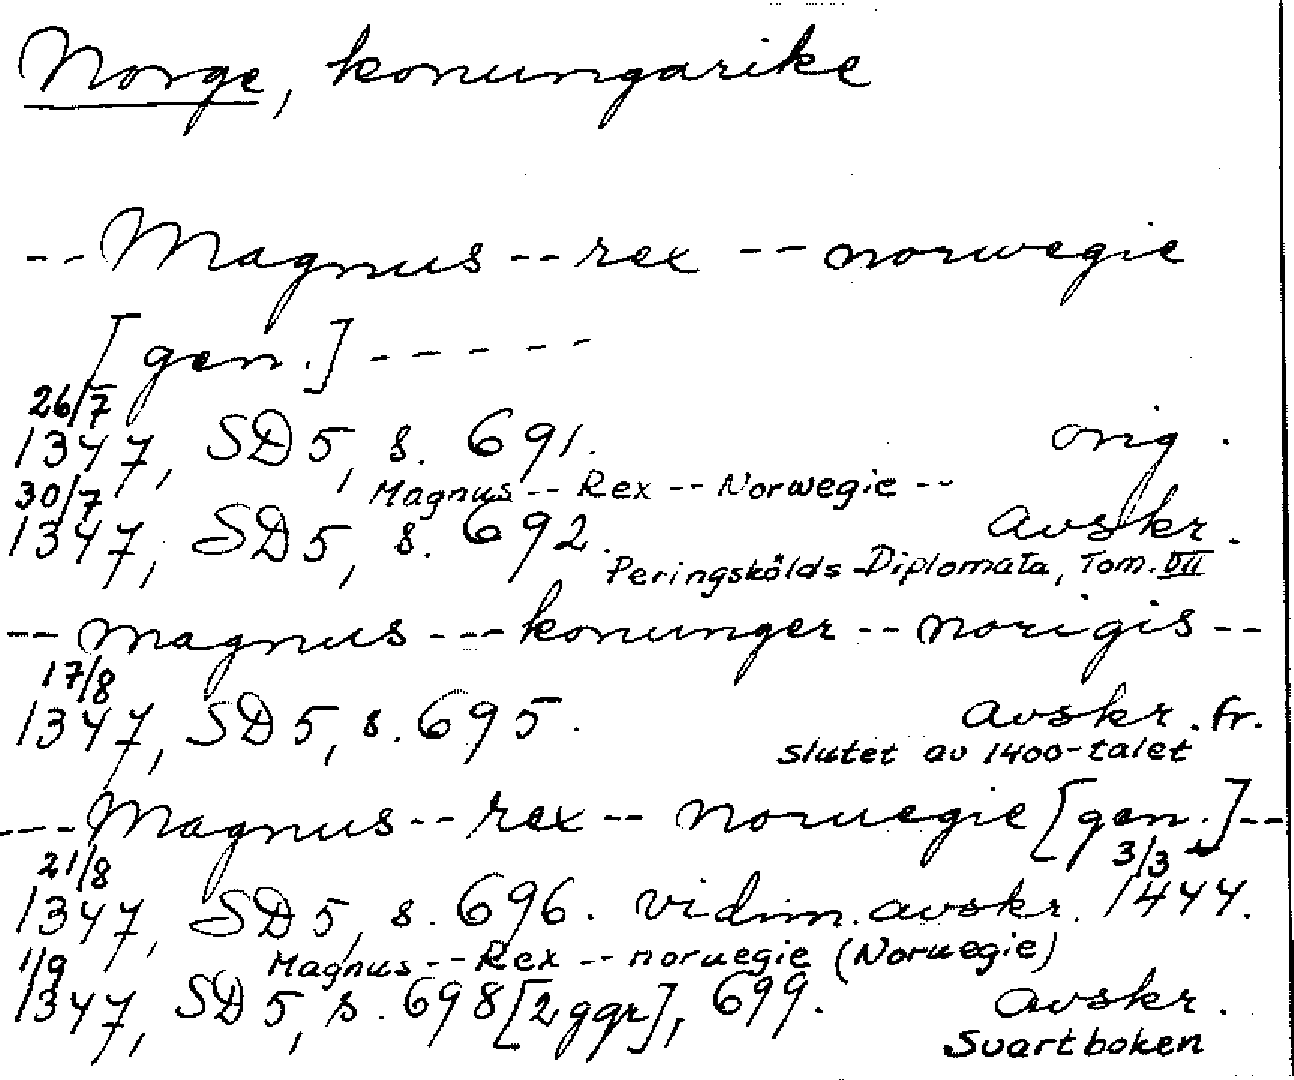 Norge, konungarike
-- Magnus -- rex -- norwegie
[gen.] - - - - -
26/7
1347, SD 5, s. 691. orig.
Magnus -- Rex -- Norwegie --
30/7
1347, SD 5, s. 692. avskr.
Peringskölds Diplomata, Tom. VII
-- magnus --- konunger -- norigis --
17/8
1347, SD 5, s. 695. avskr. fr.
slutet av 1400-talet
--- Magnus -- rex -- noruegie [gen.] --
21/8 3/3
1347, SD 5, s. 696. vidim. avskr. 1444.
Magnus -- Rex -- noruegie (Noruegie)
1/9
1347, SD 5, s. 698 [2 ggr], 699. avskr.
Svartboken